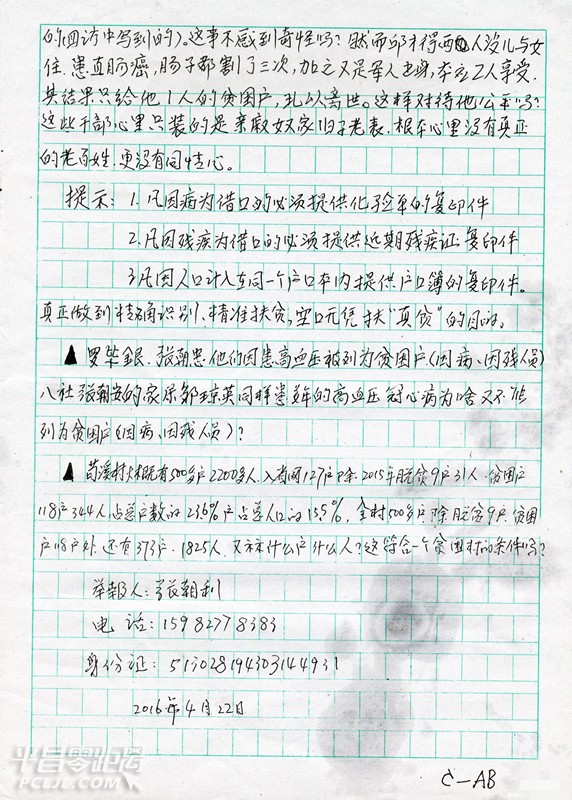 的(回访中写到的)。这事不感到奇怪吗?然而邱才得两人没儿与女
住.患直肠癌,肠子都割了三次,加之又是军人出身,本应2人享受,
其结果只给他1人的贫困户,扎以离世。这样对待他公平吗?
这些干部心里只装的是亲戚奴家旧子老表.根本心里没有真正
的老百姓.更没有同情心。
提示:1.凡因病为借口的必须提供化验单的复印件
2.凡因残疾为借口的必须提供近期残疾证复印件
3.凡因人口计入在同一个户口本内提供户口簿的复印件。
真正做到精确识别、精准扶贫,空口无凭扶"真贫"的目的。
▲罗毕银、张朝忠他们因患高血压被列为贫困户(因病、因残人员)
八社张朝安的家属邹琼英同样患多年的高血压冠心病为啥又不能
列为贫困户(因病、因残人员)?
▲苟溪村大概有500多户2200多人.入省网127户除2015年脱贫9户31人.贫困户
118户344人占总户数的23.6%户占总人口的15.5%,全村500多户除脱贫9户.贫困
户118户外.还有373户.1825人.又称什么户什么人?这符合一个贫困村的条件吗?
举报人:张朝利
电话:15982778383
身份证:513028194303144931
2016年4月22日
平昌零距离
PCLJL.COM
C-AB